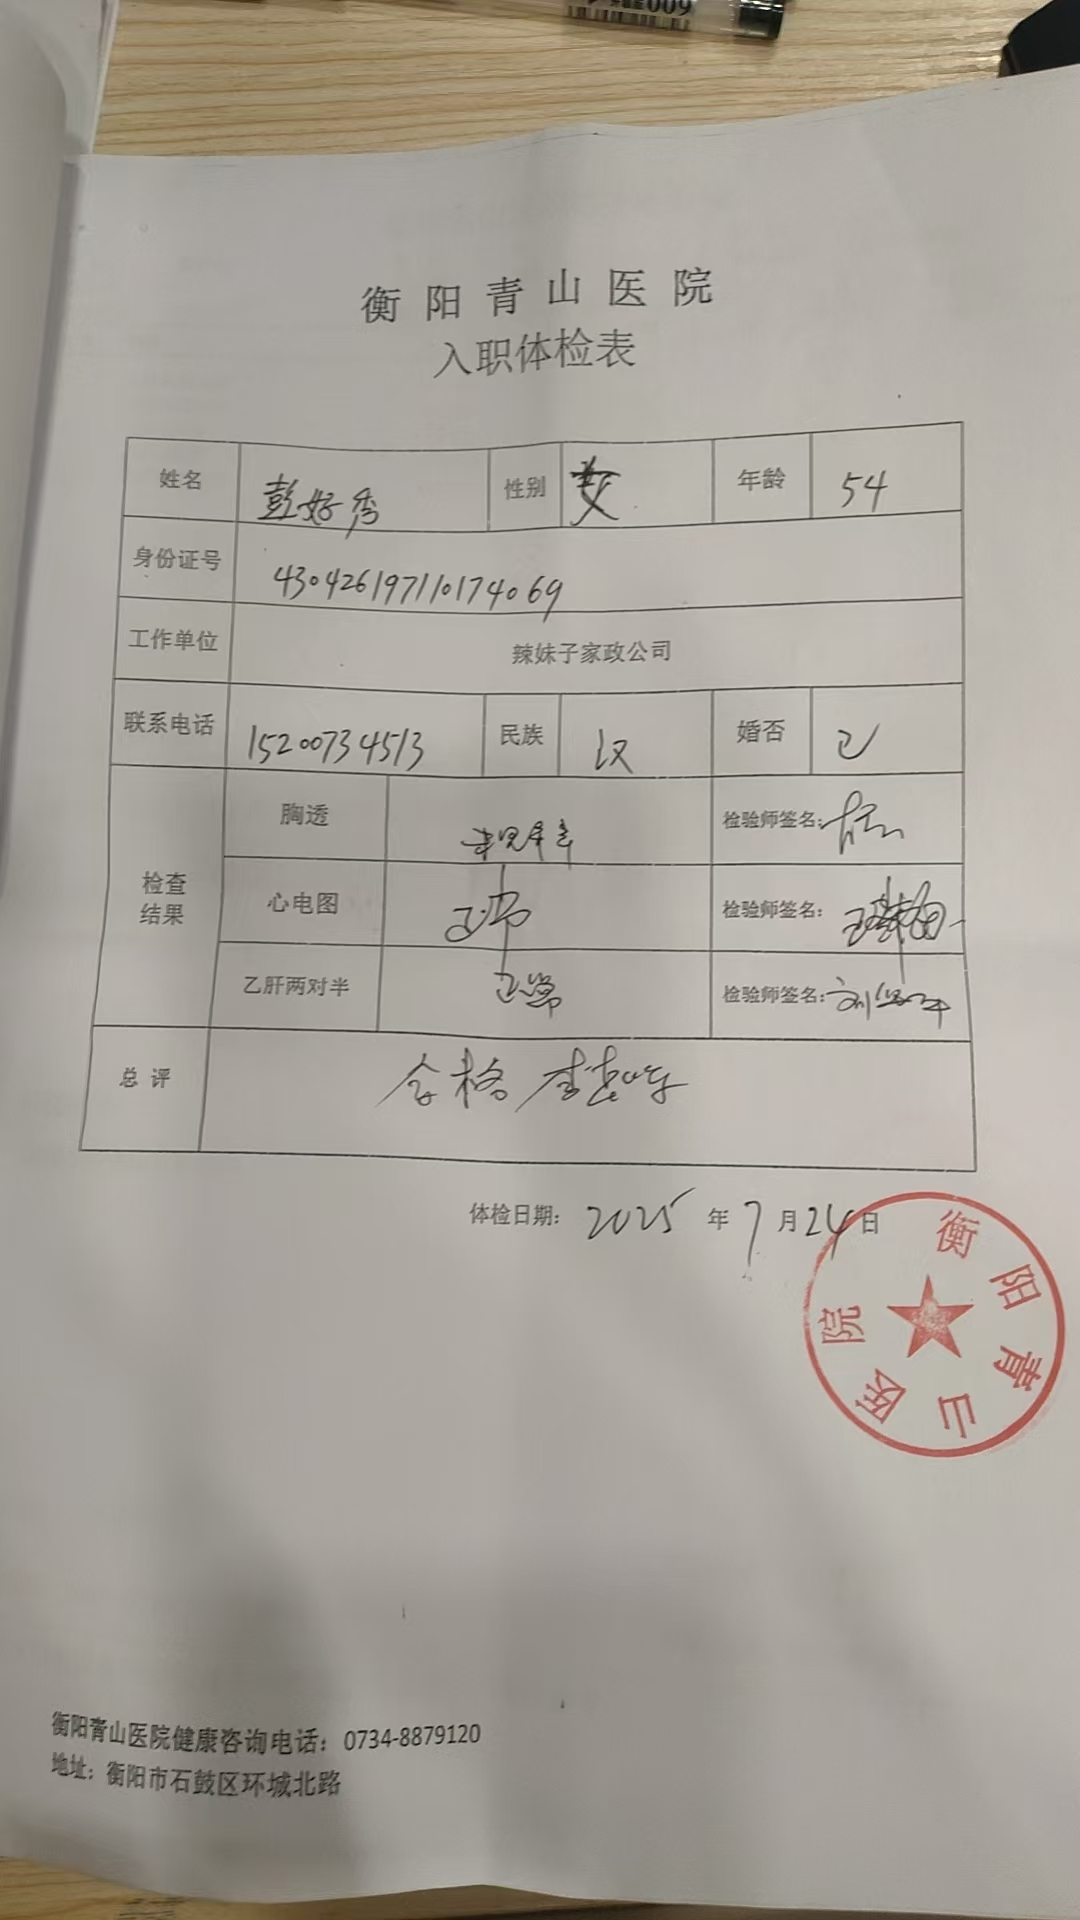 009
衡阳青山医院
入职体检表
姓名 彭好秀 性别 女 年龄 54
身份证号 430426197110174069
工作单位 辣妹子家政公司
联系电话 15200734513 民族 汉 婚否 已
检查结果
胸透 检验师签名:
心电图 正常 检验师签名:
乙肝两对半 正常 检验师签名:
总评 合格
体检日期: 2025年7月24日
衡阳青山医院
衡阳青山医院健康咨询电话: 0734-8879120
地址: 衡阳市石鼓区环城北路